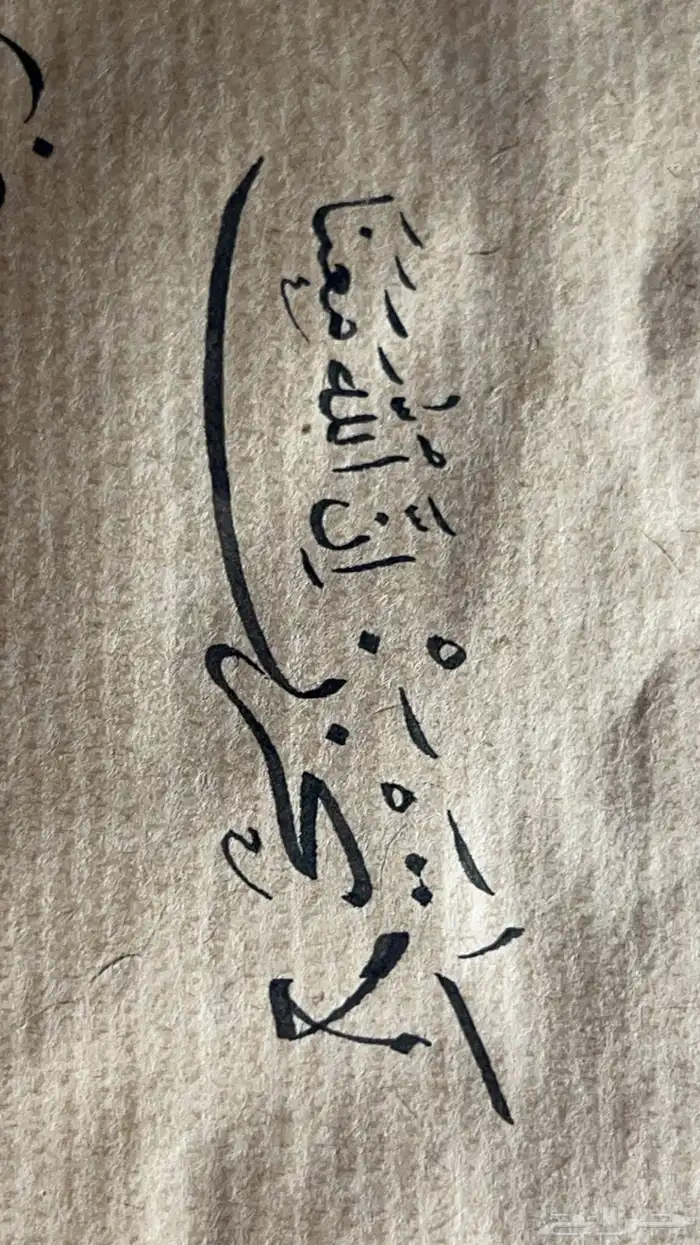 لَا تَحْزَنْ إِنَّ اللَّهَ مَعَنَا
حراج